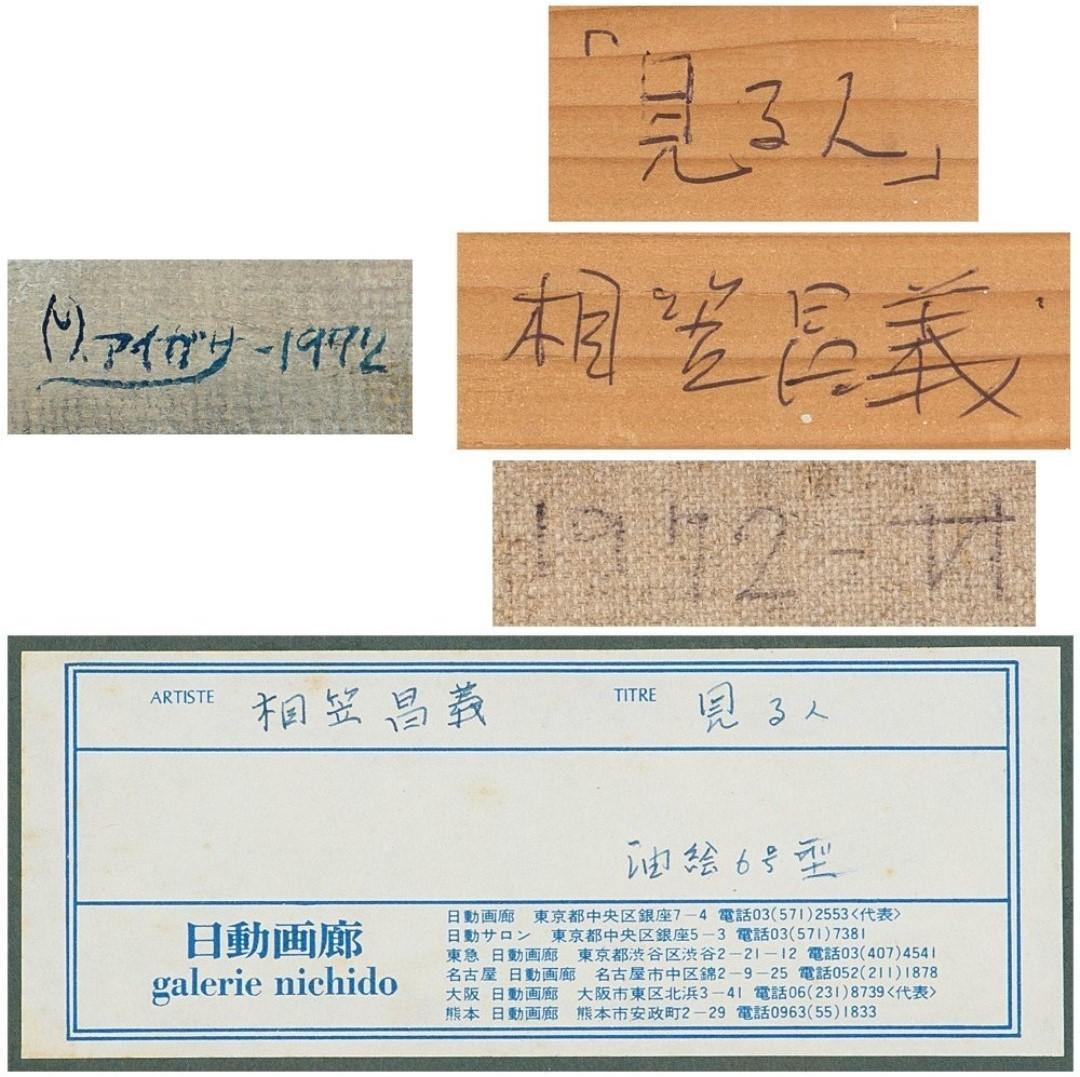 「見る人」
相笠昌義
M.アイガサ-1972
1972-VI
ARTISTE 相笠昌義 TITRE 見る人
油絵6号型
日動画廊
galerie nichido
日動画廊 東京都中央区銀座7-4 電話03(571)2553<代表>
日動サロン 東京都中央区銀座5-3 電話03(571)7381
東急 日動画廊 東京都渋谷区渋谷2-21-12 電話03(407)4541
名古屋 日動画廊 名古屋市中区錦2-9-25 電話052(211)1878
大阪 日動画廊 大阪市東区北浜3-41 電話06(231)8739<代表>
熊本 日動画廊 熊本市安政町2-29 電話0963(55)1833